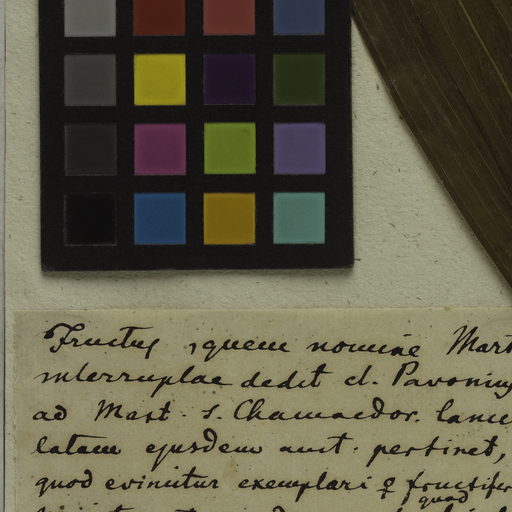 Fructus, quem nomine Mart
interruptae dedit cl. Pavonius
ad Mart. s. Chamaedor. lance
latam ejusdem auct. pertinet,
quod evincitur exemplari ♀ fructifer
quod